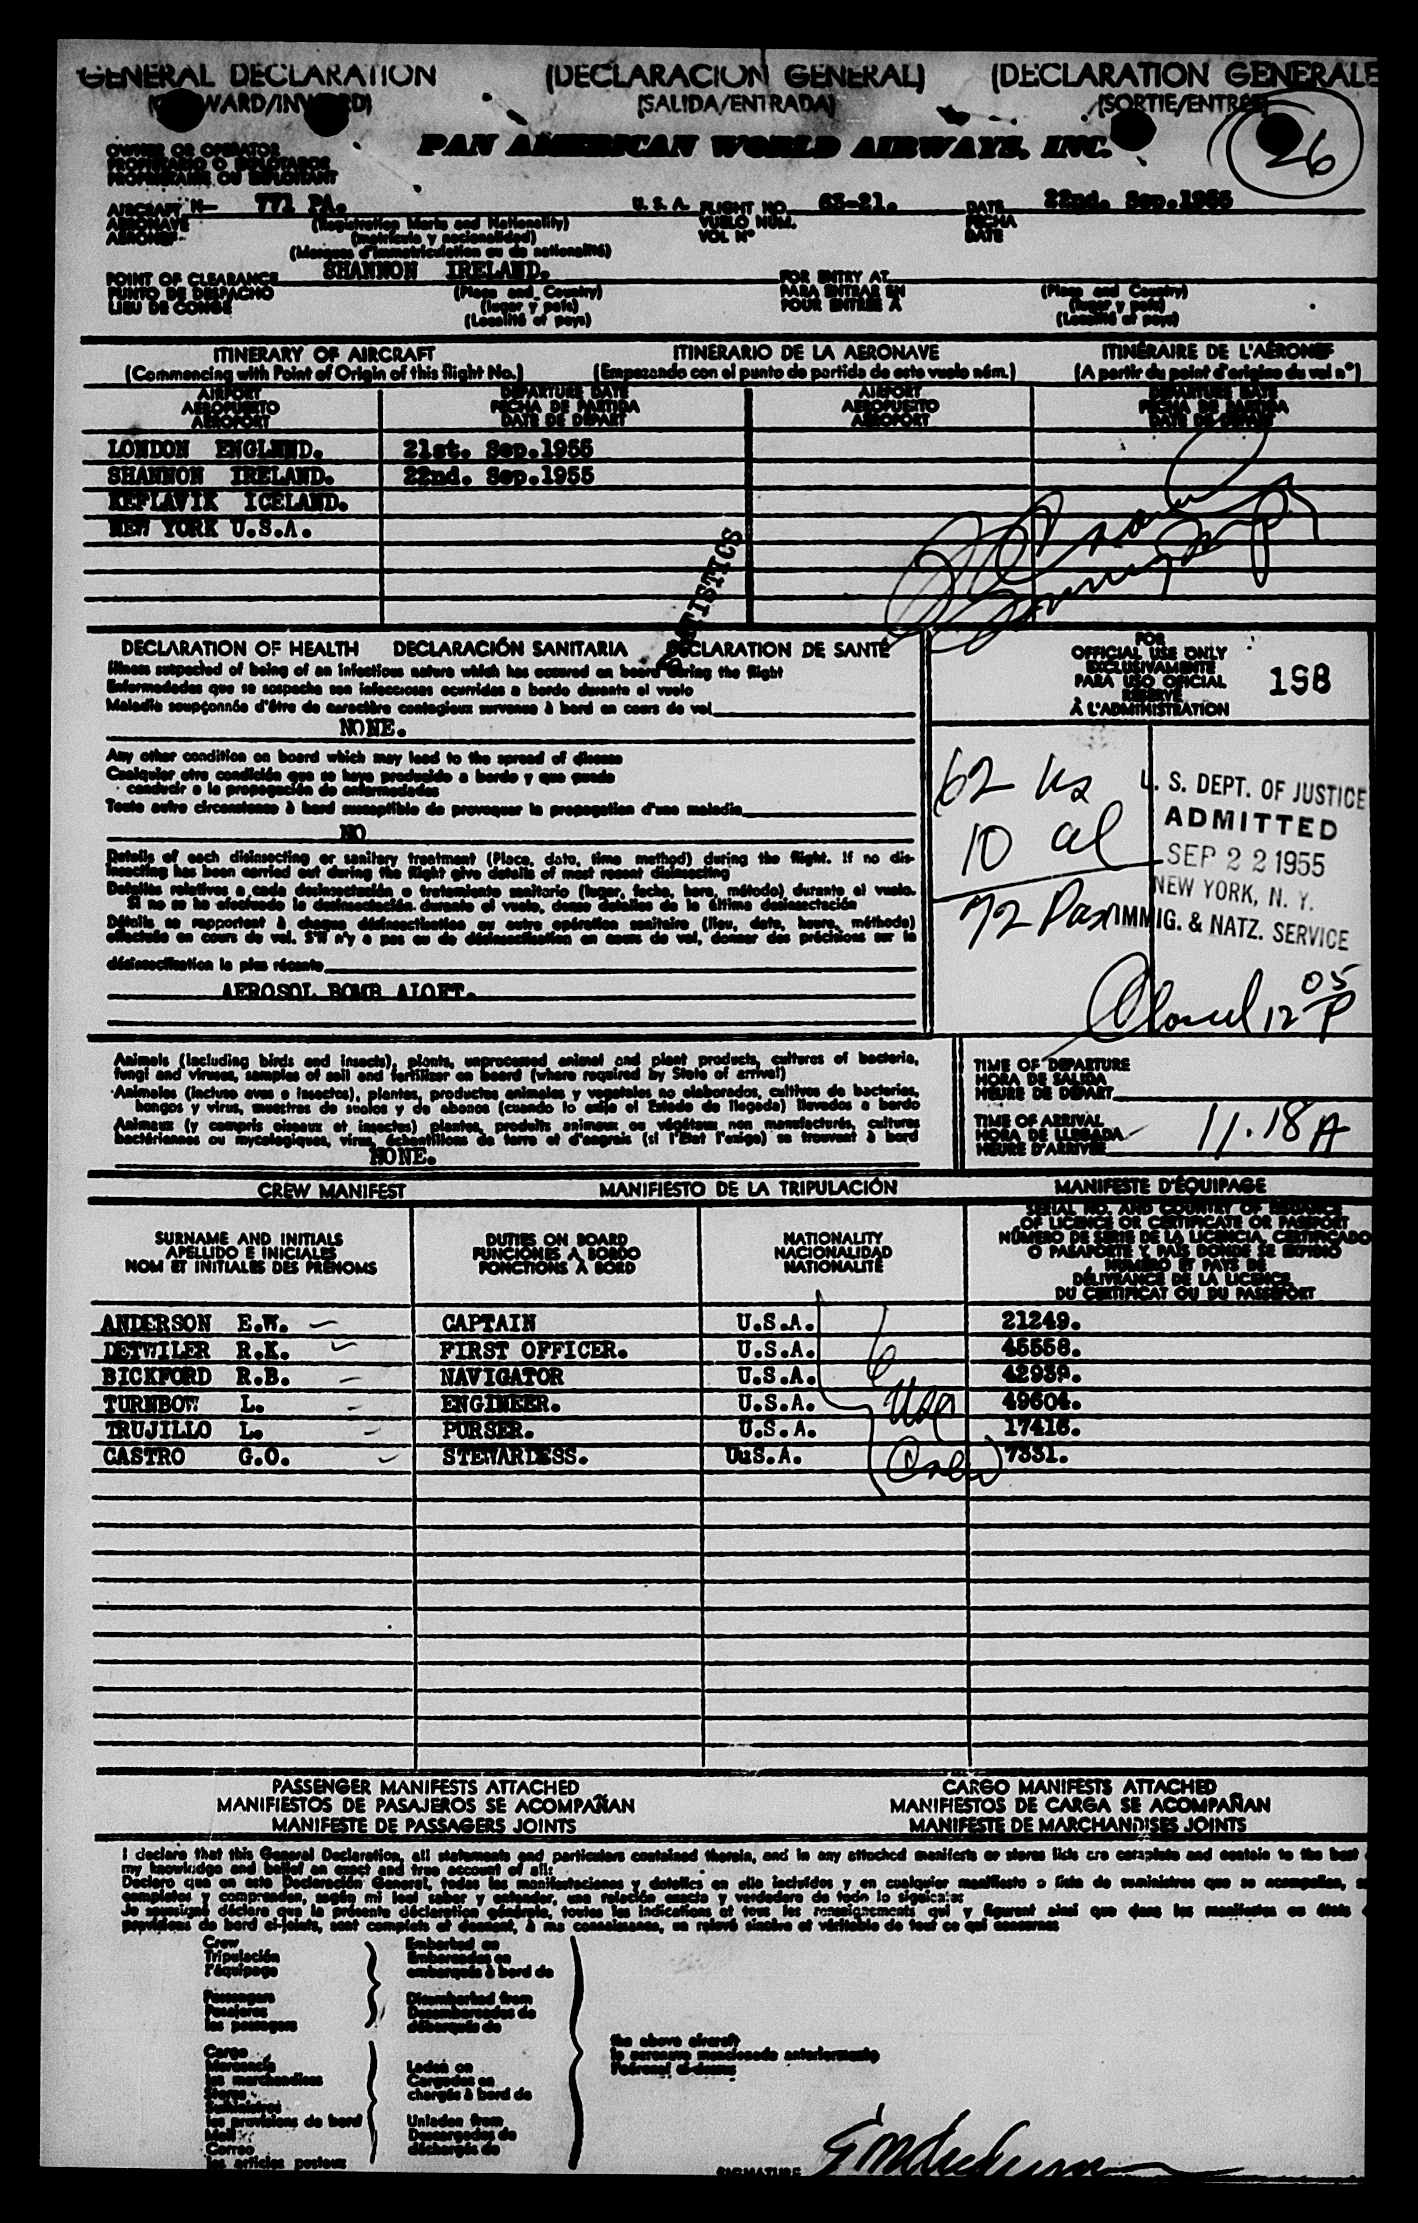 GENERAL DECLARATION (DECLARACION GENERAL) (DECLARATION GENERALE
(SALIDA/ENTRADA) (SORTIE/ENTREE)
26
OWNER OR OPERATOR
PROPIETARIO O EXPLOTADOR
PROPRIETAIRE OU EXPLOITANT
PAN AMERICAN WORLD AIRWAYS, INC.
AIRCRAFT N- 771 PA. U. S. A. FLIGHT NO. 63-21. DATE 22nd. Sep.1955
AERONAVE (Registration Marks and Nationality) VUELO NUM. FECHA
AERONEF (matrícula y nacionalidad) VOL Nº DATE
(Marques d'immatriculation ou de nationalité)
POINT OF CLEARANCE SHANNON IRELAND. FOR ENTRY AT
PUNTO DE DESPACHO (Place and Country) PARA ENTRAR EN (Place and Country)
LIEU DE CONGE (lugar y país) POUR ENTREE A (lugar y país)
(Localité et pays) (Localité et pays)
ITINERARY OF AIRCRAFT ITINERARIO DE LA AERONAVE ITINÉRAIRE DE L'AÉRONEF
(Commencing with Point of Origin of this flight No.) (Empezando con el punto de partida de este vuelo núm.) (A partir du point d'origine du vol nº)
AIRPORT DEPARTURE DATE AIRPORT DEPARTURE DATE
AEROPUERTO FECHA DE PARTIDA AEROPUERTO FECHA DE PARTIDA
AEROPORT DATE DE DEPART AEROPORT DATE DE DEPART
LONDON ENGLNND. 21st. Sep.1955
SHANNON IRELAND. 22nd. Sep.1955
KEFLAVIK ICELAND.
NEW YORK U.S.A.
STATISTICS
DECLARATION OF HEALTH DECLARACIÓN SANITARIA DECLARATION DE SANTÉ
Illness suspected of being of an infectious nature which has occured on board during the flight
Enfermedades que se sospecha son infecciosas ocurridas a bordo durante el vuelo
Maladie soupçonnée d'être de caractère contagieux survenue à bord en cours de vol
NONE.
FOR
OFFICIAL USE ONLY
EXCLUSIVAMENTE
PARA USO OFICIAL
RESERVE
À L'ADMINISTRATION
198
Any other condition on board which may lead to the spread of disease
Cualquier otra condición que se haya producido a bordo y que puede
conducir a la propagación de enfermedades
Toute autre circonstance à bord susceptible de provoquer la propagation d'une maladie
NO
Details of each disinsecting or sanitary treatment (Place, date, time method) during the flight. If no dis-
insecting has been carried out during the flight give details of most recent disinsecting
Detalles relativos a cada desinsectación o tratamiento sanitario (lugar, fecha, hora, método) durante el vuelo.
Si no se ha efectuado la desinsectación durante el vuelo, dense detalles de la última desinsectación
Détails se rapportant à chaque désinsectisation ou autre opération sanitaire (lieu, date, heure, méthode)
effectuée en cours de vol. S'il n'y a pas eu de désinsectisation en cours de vol, donner des précisions sur la
désinsectisation la plus récente
AEROSOL BOMB ALOFT.
62 us
10 al
72 Pax
U. S. DEPT. OF JUSTICE
ADMITTED
SEP 22 1955
NEW YORK, N. Y.
IMMIG. & NATZ. SERVICE
Closed 12 05 P
Animals (including birds and insects), plants, unprocessed animal and plant products, cultures of bacteria,
fungi and viruses, samples of soil and fertilizer on board (where required by State of arrival)
Animales (incluso aves e insectos), plantas, productos animales y vegetales no elaborados, cultivos de bacterias,
hongos y virus, muestras de suelos y de abonos (cuando lo exija el Estado de llegada) llevados a bordo
Animaux (y compris oiseaux et insectes) plantes, produits animaux ou végétaux non manufacturés, cultures
bactériennes ou mycologiques, virus, échantillons de terre et d'engrais (si l'Etat l'exige) se trouvant à bord
NONE.
TIME OF DEPARTURE
HORA DE SALIDA
HEURE DE DEPART
TIME OF ARRIVAL
HORA DE LLEGADA
HEURE D'ARRIVEE
11.18 A
CREW MANIFEST MANIFIESTO DE LA TRIPULACIÓN MANIFESTE D'ÉQUIPAGE
SURNAME AND INITIALS
APELLIDO E INICIALES
NOM ET INITIALES DES PRENOMS
DUTIES ON BOARD
FUNCIONES A BORDO
FONCTIONS À BORD
NATIONALITY
NACIONALIDAD
NATIONALITÉ
SERIAL NO. AND COUNTRY OF ISSUANCE
OF LICENCE OR CERTIFICATE OR PASSPORT
NÚMERO DE SERIE DE LA LICENCIA, CERTIFICADO
O PASAPORTE Y PAÍS DONDE SE EXPIDIÓ
NUMÉRO ET PAYS DE
DÉLIVRANCE DE LA LICENCE
DU CERTIFICAT OU DU PASSEPORT
ANDERSON E.W. CAPTAIN U.S.A. 21249.
DETWILER R.K. FIRST OFFICER. U.S.A. 45558.
BICKFORD R.B. NAVIGATOR U.S.A. 42939.
TURNBOW L. ENGINEER. U.S.A. 49604.
TRUJILLO L. PURSER. U.S.A. 17416.
CASTRO G.O. STEWARDESS. UuS.A. 7331.
6
Usa
Crew
PASSENGER MANIFESTS ATTACHED CARGO MANIFESTS ATTACHED
MANIFIESTOS DE PASAJEROS SE ACOMPAÑAN MANIFIESTOS DE CARGA SE ACOMPAÑAN
MANIFESTE DE PASSAGERS JOINTS MANIFESTE DE MARCHANDISES JOINTS
I declare that this General Declaration, all statements and particulars contained therein, and in any attached manifests or stores lists are complete and contain to the best
my knowledge and belief an exact and true account of all:
Declaro que en esta Declaración General, todas las manifestaciones y detalles en ella incluidos y en cualquier manifiesto o lista de suministros que se acompañan,
completos y comprenden, según mi leal saber y entender, una relación exacta y verdadera de todo lo siguiente:
Je soussigné déclare que la présente déclaration générale, toutes les indications et tous les renseignements qui y figurent ainsi que dans les manifestes ou états
provisions de bord ci-joints, sont complets et donnent, à ma connaissance, un relevé sincère et véritable de tout ce qui concerne:
Crew Embarked on
Tripulación Embarcados en
l'équipage embarqués à bord de
Passengers Disembarked from
Pasajeros Desembarcados de
les passagers débarqués de
the above aircraft
la aeronave mencionada anteriormente
l'aéronef ci-dessus
Cargo
Mercancía Laden on
les marchandises Cargados en
Stores chargés à bord de
Suministros
les provisions de bord Unladen from
Mail Descargados de
Correo déchargés de
les articles postaux
SIGNATURE